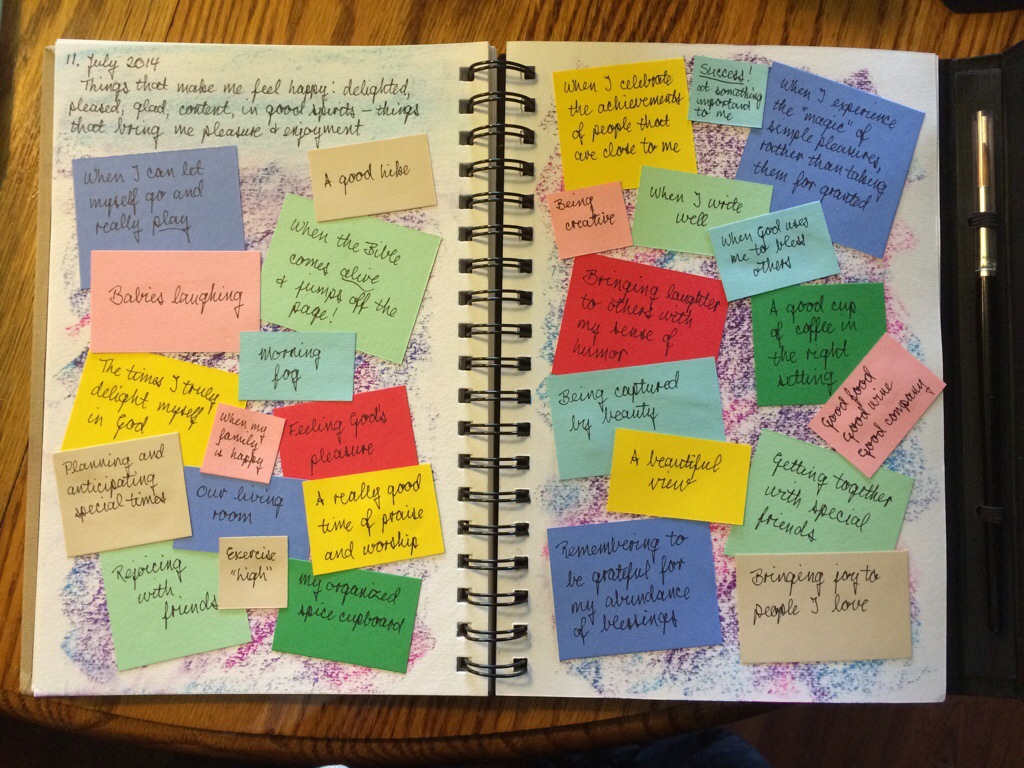 11. July 2014
Things that make me feel happy: delighted,
pleased, glad, content, in good spirits – things
that bring me pleasure & enjoyment
When I can let
myself go and
really play
A good hike
Babies laughing
When the Bible
comes alive
& jumps off the
page!
Morning
fog
The times I truly
delight myself
in God
When my
family
is happy
Feeling God's
pleasure
Planning and
anticipating
special times
Our living
room
A really good
time of praise
and worship
Rejoicing
with
friends
Exercise
"high"
My organized
spice cupboard
When I celebrate
the achievements
of people that
are close to me
Success!
at something
important
to me
When I experience
the "magic" of
simple pleasures,
rather than taking
them for granted
Being
creative
When I write
well
When God uses
me to bless
others
Bringing laughter
to others with
my sense of
humor
A good cup
of coffee in
the right
setting
Being captured
by beauty
Good food
Good wine
Good company
A beautiful
view
Getting together
with special
friends
Remembering to
be grateful for
my abundance
of blessings
Bringing joy to
people I love